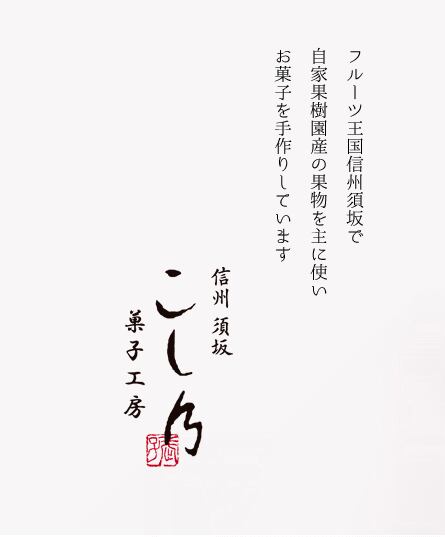 フルーツ王国信州須坂で
自家果樹園産の果物を主に使い
お菓子を手作りしています
信州 須坂
こし乃
菓子工房